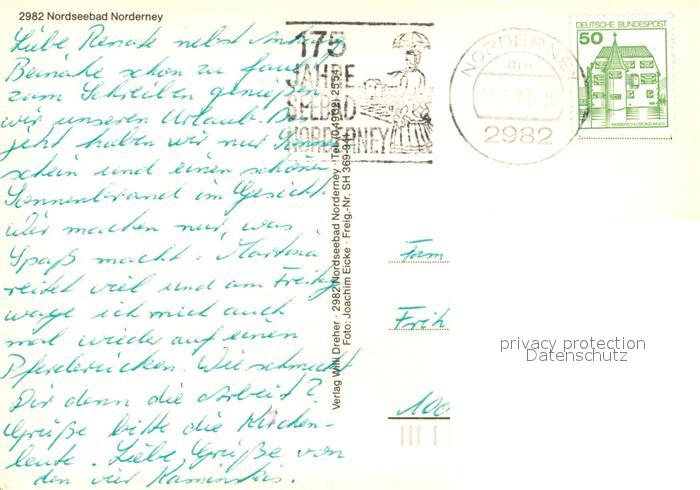 2982 Nordseebad Norderney
Liebe Renate nebst
Beinahe schon zu faul
zum Schreiben genießen
wir unseren Urlaub.
jetzt haben wir nur Sonnen-
schein und einen schönen
Sonnenbrand im Gesicht.
Wir machen nur, was
Spaß macht. Martina
reitet viel und am Freitag
wage ich mich auch
mal wieder auf einen
Pferderücken. Wie schmeckt
Dir denn die Arbeit?
Grüße bitte die Kirchen-
leute. Liebe Grüße von
den vier
175
JAHRE
SEEBAD
NORDERNEY
Verlag Willi Dreher · 2982 Nordseebad Norderney · Tel. (0 49 32) 25 54
Foto: Joachim Eicke · Freig.-Nr. SH 369-94
NORDERNEY
ma
2982
DEUTSCHE BUNDESPOST
50
Fam
Früh
100
privacy protection
Datenschutz